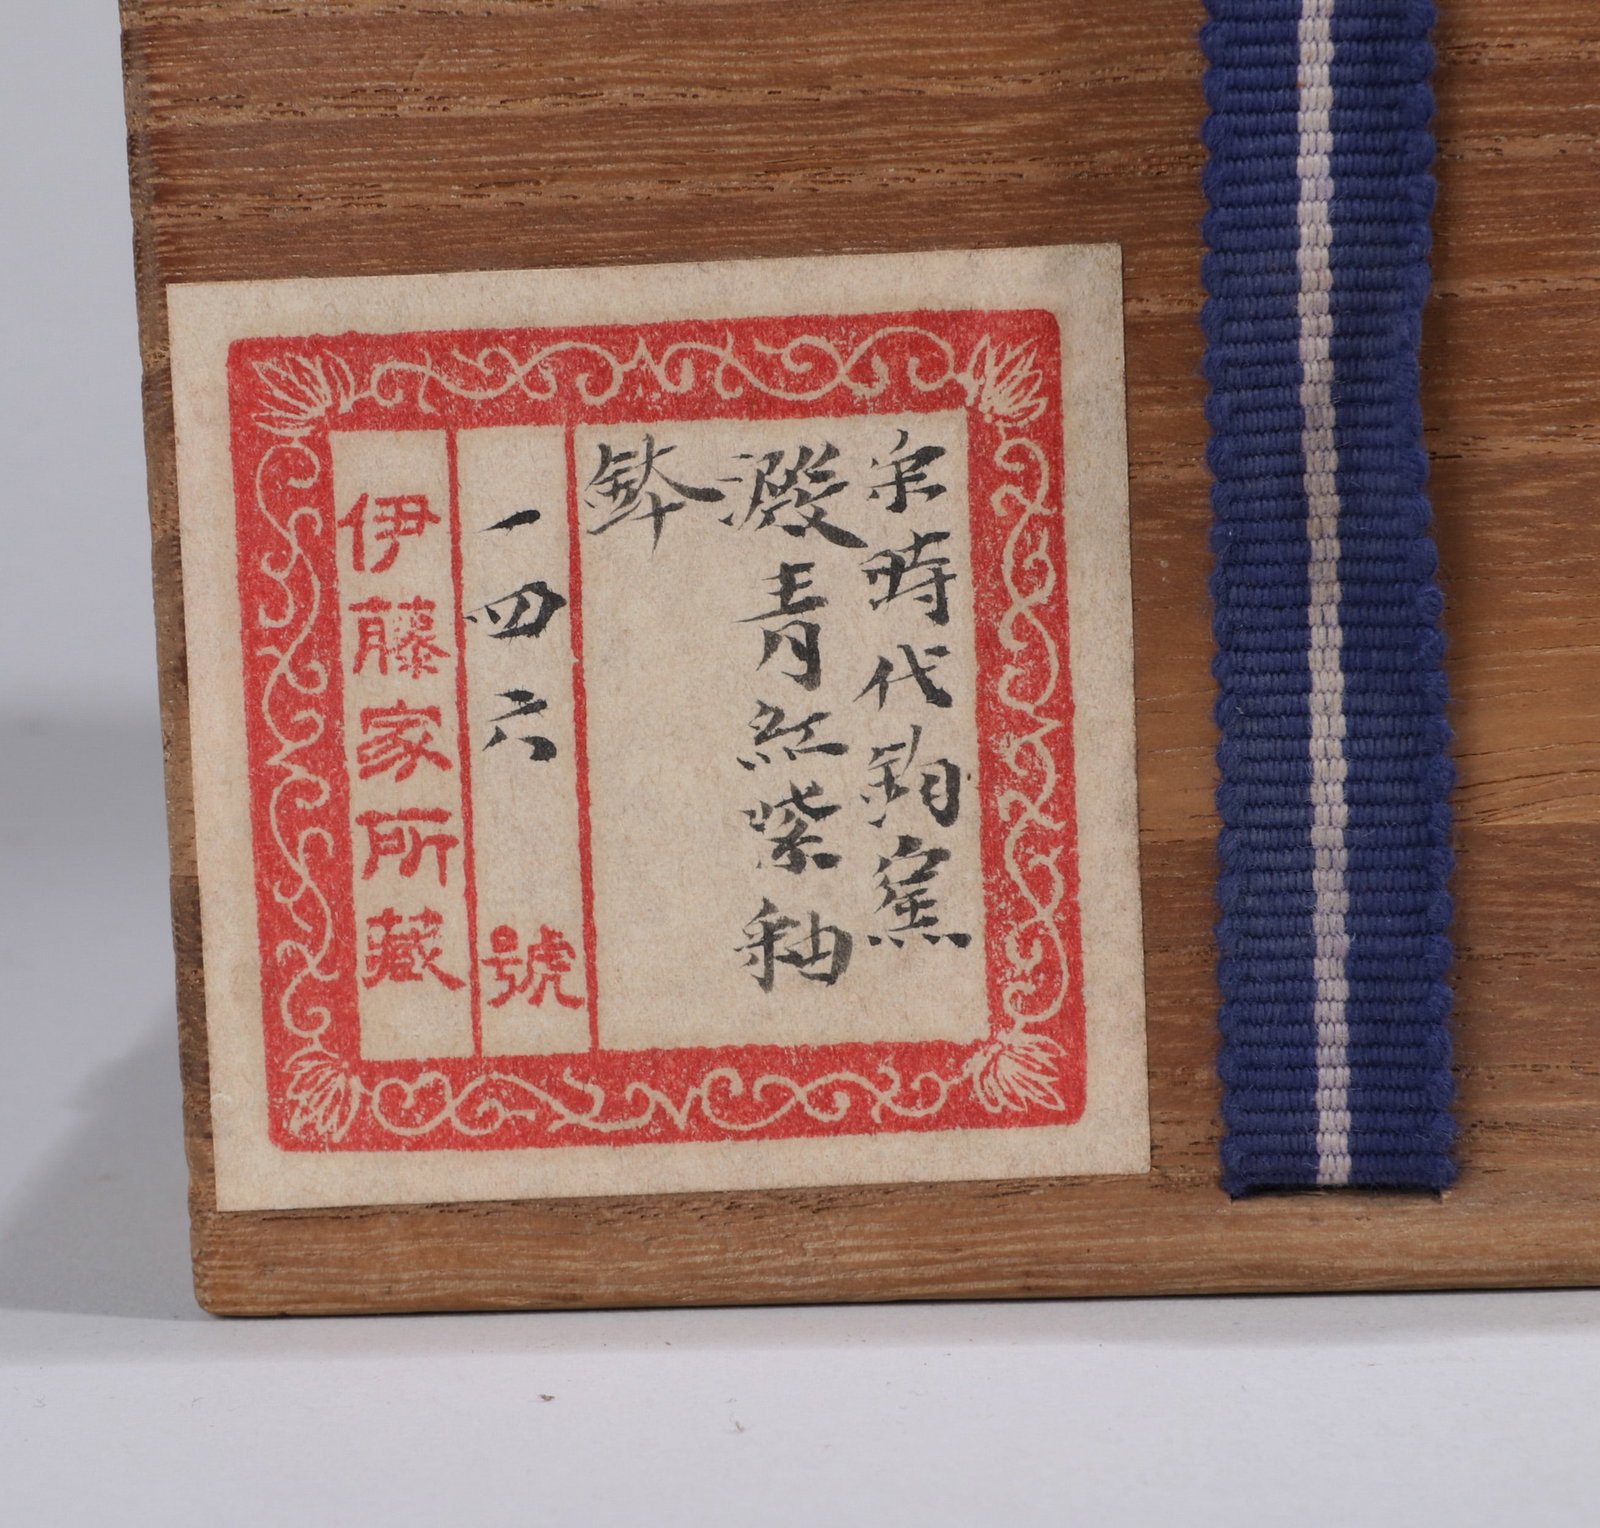 宋時代鈞窯
澱青紅紫釉
鉢
一四六號
伊藤家所藏